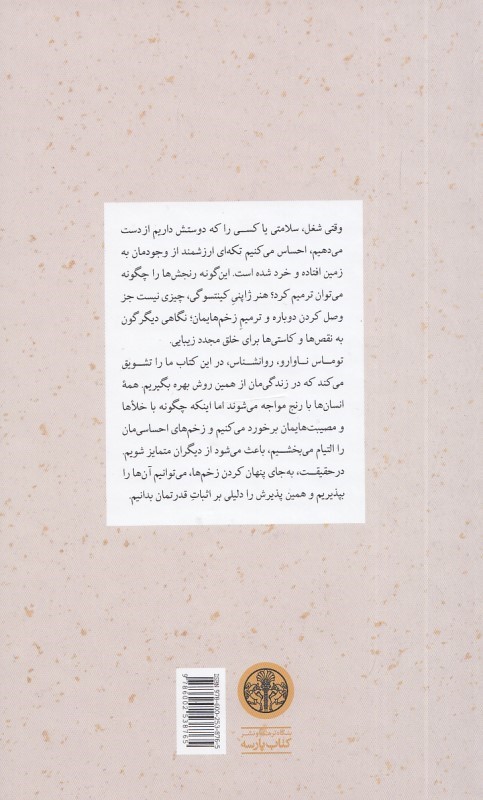 وقتی شغل، سلامتی یا کسی را که دوستش داریم از دست
می‌دهیم، احساس می‌کنیم تکه‌ای ارزشمند از وجودمان به
زمین افتاده و خرد شده است. این‌گونه رنجش‌ها را چگونه
می‌توان ترمیم کرد؟ هنر ژاپنیِ کینتسوگی، چیزی نیست جز
وصل کردن دوباره و ترمیمِ زخم‌هایمان؛ نگاهی دیگرگون
به نقص‌ها و کاستی‌ها برای خلق مجدد زیبایی.
توماس ناوارو، روانشناس، در این کتاب ما را تشویق
می‌کند که در زندگی‌مان از همین روش بهره بگیریم. همۀ
انسان‌ها با رنج مواجه می‌شوند اما اینکه چگونه با خلأها
و مصیبت‌هایمان برخورد می‌کنیم و زخم‌های احساسی‌مان
را التیام می‌بخشیم، باعث می‌شود از دیگران متمایز شویم.
درحقیقت، به‌جای پنهان کردن زخم‌ها، می‌توانیم آن‌ها را
بپذیریم و همین پذیرش را دلیلی بر اثباتِ قدرتمان بدانیم.
ISBN 978-600-253-876-5
9786002538765
بنگاه ترجمه و نشر
کتاب پارسه